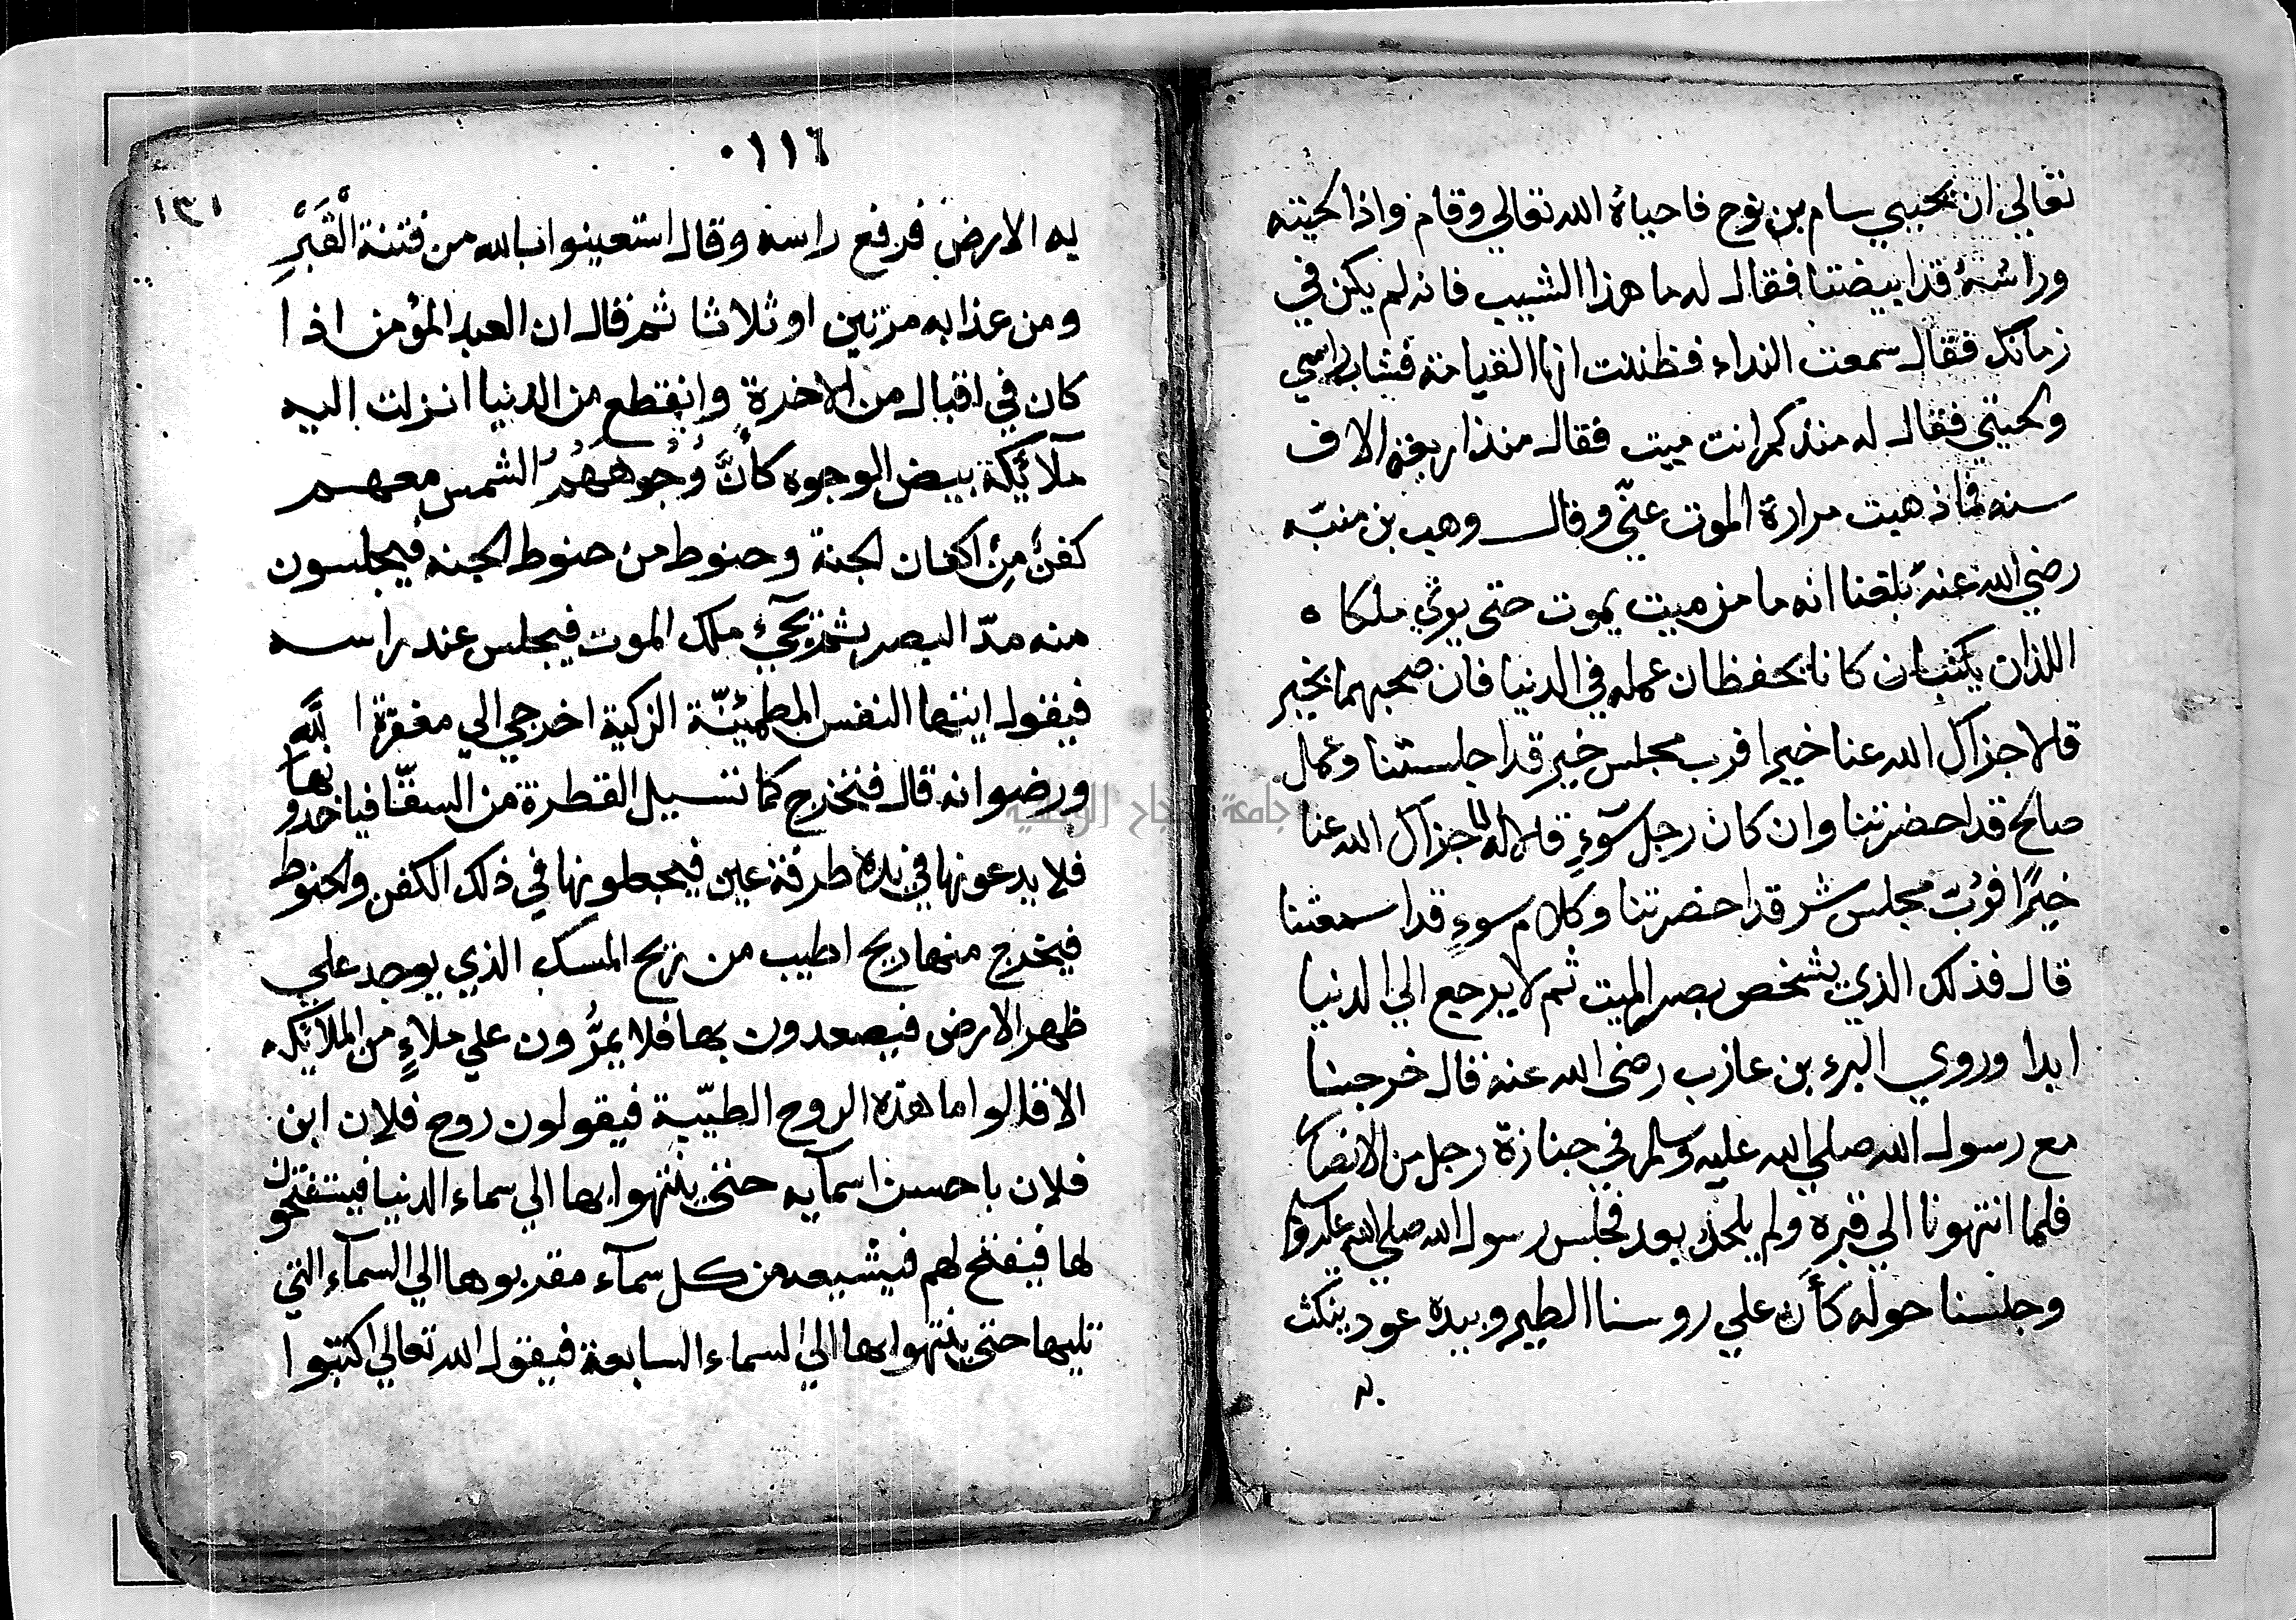 تعالي ان يحيي سام بن نوح فاحياه الله تعالي وقام واذا لحيته
وراسه قد ابيضتا فقال له ما هذا الشيب فانه لم يكن في
زمانك فقال سمعت النداء فظننت انها القيامة فشاب راسي
ولحيتي فقال له منذ كم انت ميت فقال منذ اربعة الاف
سنه فما ذهبت مرارة الموت عنّي وقال وهب بن منبّه
رضي الله عنه بلغنا انه ما من ميت يموت حتى يري ملكاه
اللذان يكتبان كانا يحفظان عمله في الدنيا فان صحبهما بخير
قالا جزاك الله عنا خيرا فرب مجلس خير قد اجلستنا وعمل
صالح قد احضرتنا وان كان رجل سوّءٍ قالا له لا جزاك الله عنا
خيرًا فرُبّ مجلس شر قد احضرتنا وكلام سوءٍ قد اسمعتنا
قال فذلك الذي يشخص بصر الميت ثم لا يرجع الي الدنيا
ابدا وروي البرء بن عازب رضى الله عنه قال خرجنا
مع رسول الله صلي الله عليه وسلم في جنازة رجل من الانصار
فلما انتهونا الي قبره ولم يلحد بعد فجلس رسول الله صلي الله عليه وسلم
وجلسنا حوله كأن علي روسنا الطير وبيده عود ينكت
به
١١٦
١٣١
به الارض فرفع راسه وقال استعينوا بالله من فتنة الْقَبْرِ
ومن عذابه مرتين او ثلاثا ثم قال ان العبد المؤمن اذا
كان في اقبال من الاخرة وانقطع من الدنيا انزلت اليه
ملآئكة بيض الوجوه كأنَّ وُجُوهَهُمُ الشمس معهم
كفنٌ مِن اكفان الجنة وحنوط من حنوط الجنه فيجلسون
منه مدّ البصر ثم يجيٓء ملك الموت فيجلس عند راسه
فيقول ايتها النفس المطمئنّة الزكية اخرجي الي مغفرة الله
ورضوانه قال فتخرج كما تسيل القطرة من السقّا فياخذونها
فلا يدعونها في يده طرفة عين فيجعلونها في ذلك الكفن والحنوط
فيخرج منها ريح اطيب من ريح المسك الذي يوجد علي
ظهر الارض فيصعدون بها فلا يمرُّون علي ملاءٍ من الملائكه
الا قالوا ما هذه الروح الطيّبة فيقولون روح فلان ابن
فلان باحسن اسمآيه حتى ينتهوا بها الي سماء الدنيا فيستفتحون
لها فيفتح لهم فيشيعه من كل سمآء مقربوها الي السمآء التي
تليها حتى ينتهوا بها الي السماء السابعة فيقول الله تعالي اكتبوا
جامعة النجاح الوطنية